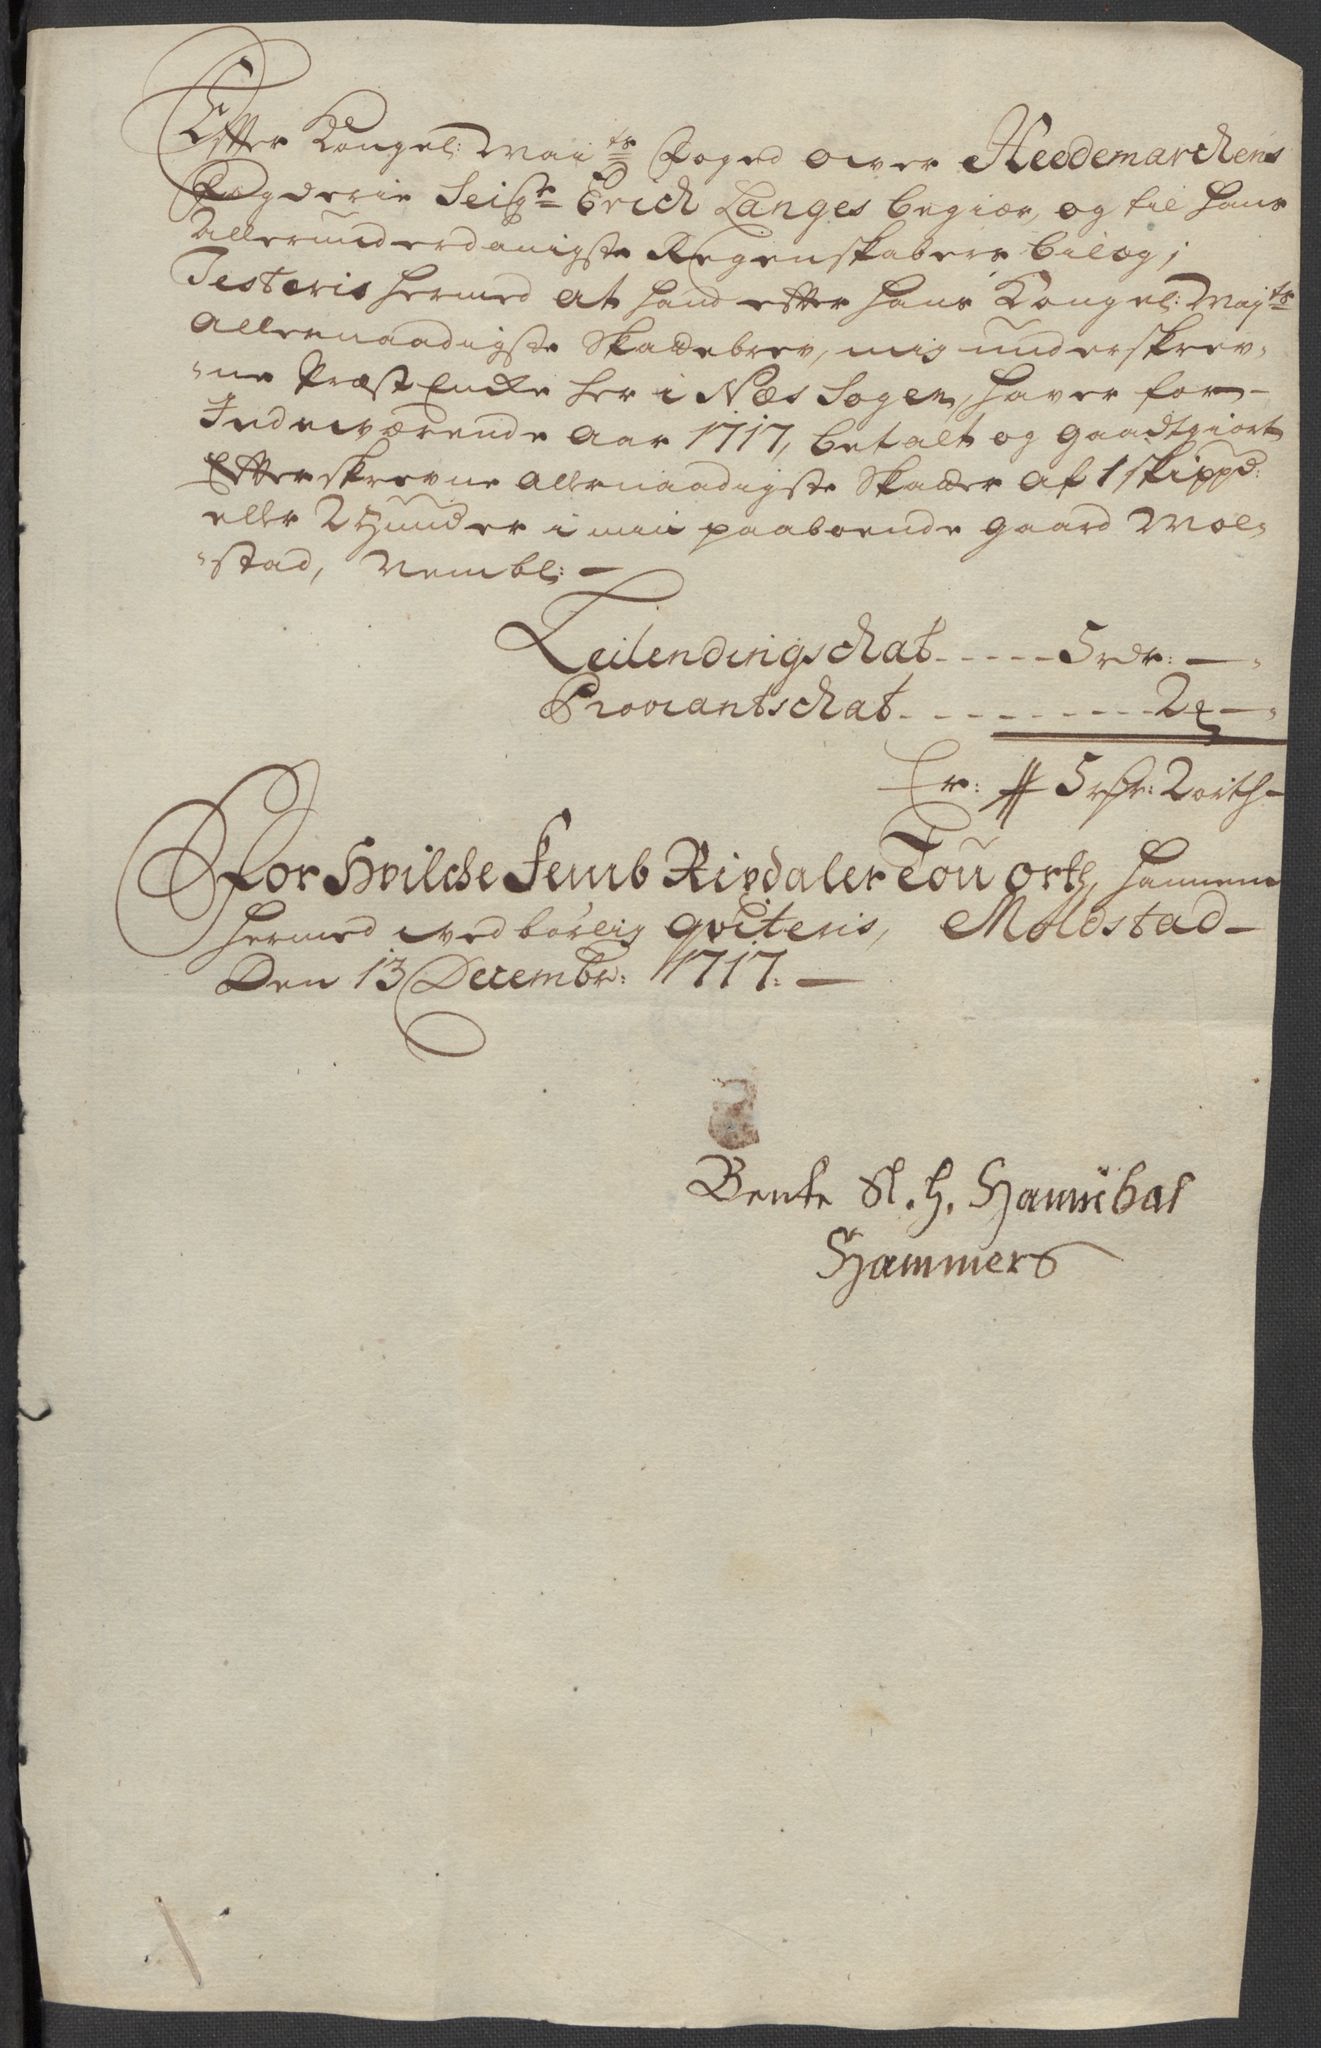 Efter Kongel: Mai^ts Foged ower Heedemarchens
Fogderie Seig^r Erich Langes begiær, og til hans
Allerunderdanigste Regenskabers bilag,
Testeris hermed at hand efter hans Kongel: Maj^ts
Allernaadigste Skattebrev, mig underskrev-
-ne Præst Encke her i Næs Sogen, haver for
Indewærende Aar 1717, betalt og gaadtgiort
Efterskrevne allernaadigste Skatter af 1 skippd:
eller 2 Hunder i min paaboende gaard Mol-
-stad, Nembl:
Leilendingschat - - - - - 5 rdr: —
Proviantschat - - - - - - - - - 2 —
Er: 5 rdr: 2 orth
For Hvilche Femb Rixdaler Tou orth, hannem
hermed wedbørlig qviteris, Moldstad
Den 13 Decembr: 1717.
Bente Sl. H. Hannibal
Hammers